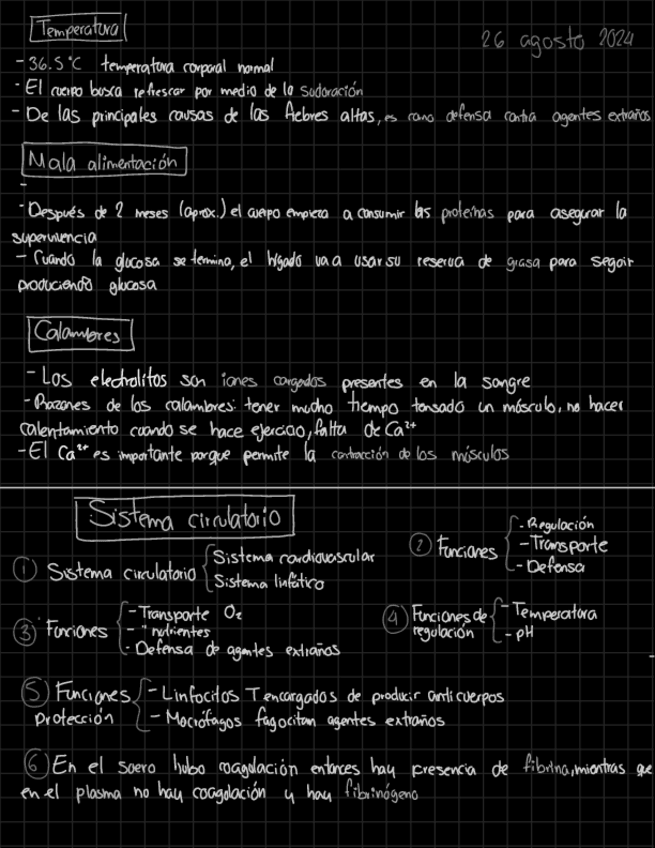 Temperatura
26 agosto 2024
- 36.5°C temperatura corporal normal
- El cuerpo busca refrescar por medio de la sudoración
- De las principales causas de las fiebres altas, es como defensa contra agentes extraños
Mala alimentación
-
- Después de 2 meses (aprox.) el cuerpo empieza a consumir las proteínas para asegurar la
supervivencia
- Cuando la glucosa se termina, el hígado va a usar su reserva de grasa para seguir
produciendo glucosa
Calambres
- Los electrolitos son iones cargados presentes en la sangre
- Razones de los calambres: tener mucho tiempo tensado un músculo, no hacer
calentamiento cuando se hace ejercicio, falta de Ca²⁺
- El Ca²⁺ es importante porque permite la contracción de los músculos
Sistema circulatorio
① Sistema circulatorio { Sistema cardiovascular
Sistema linfático
② Funciones { - Regulación
- Transporte
- Defensa
③ Funciones { - Transporte O₂
- " nutrientes
- Defensa de agentes extraños
④ Funciones de regulación { - Temperatura
- pH
⑤ Funciones protección { - Linfocitos T encargados de producir anticuerpos
- Macrófagos fagocitan agentes extraños
⑥ En el suero hubo coagulación entonces hay presencia de fibrina, mientras que
en el plasma no hay coagulación y hay fibrinógeno